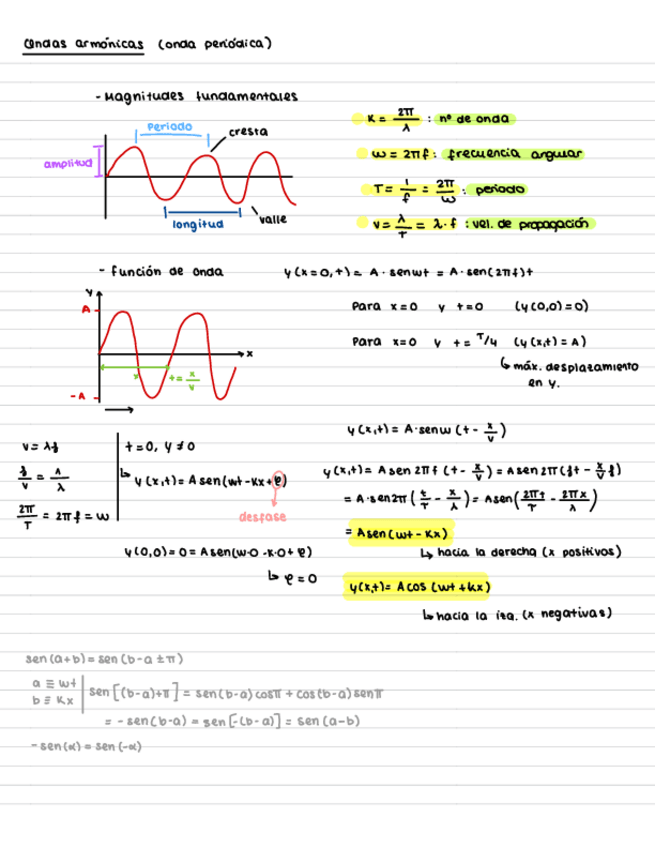 Ondas armónicas (onda periódica)
- Magnitudes fundamentales
Periodo
cresta
amplitud
longitud
valle
K = 2π/λ : nº de onda
ω = 2πf : frecuencia angular
T = 1/f = 2π/ω : periodo
v = λ/T = λ·f : vel. de propagación
- función de onda
y(x=0,t) = A · senωt = A · sen(2πf)t
y
A
x
t = x/v
-A
Para x=0 y t=0 (y(0,0)=0)
Para x=0 y t = T/4 (y(x,t) = A)
↳ máx. desplazamiento
en y.
v = λf
f/v = 1/λ
2π/T = 2πf = ω
t=0, y≠0
↳ y(x,t) = A sen(ωt - Kx + φ)
desfase
y(0,0) = 0 = A sen(ω·0 - K·0 + φ)
↳ φ = 0
y(x,t) = A·senω (t - x/v)
y(x,t) = A sen 2πf (t - x/v) = A sen 2π(ft - x/v f)
= A · sen2π (t/T - x/λ) = A sen(2πt/T - 2πx/λ)
= A sen(ωt - Kx)
↳ hacia la derecha (x positivos)
y(x,t) = A cos (ωt + kx)
↳ hacia la izq. (x negativas)
sen(a+b) = sen(b-a ± π)
a ≡ ωt
b ≡ Kx
sen[(b-a)+π] = sen(b-a) cosπ + cos(b-a) senπ
= - sen(b-a) = sen[-(b-a)] = sen(a-b)
- sen(α) = sen(-α)